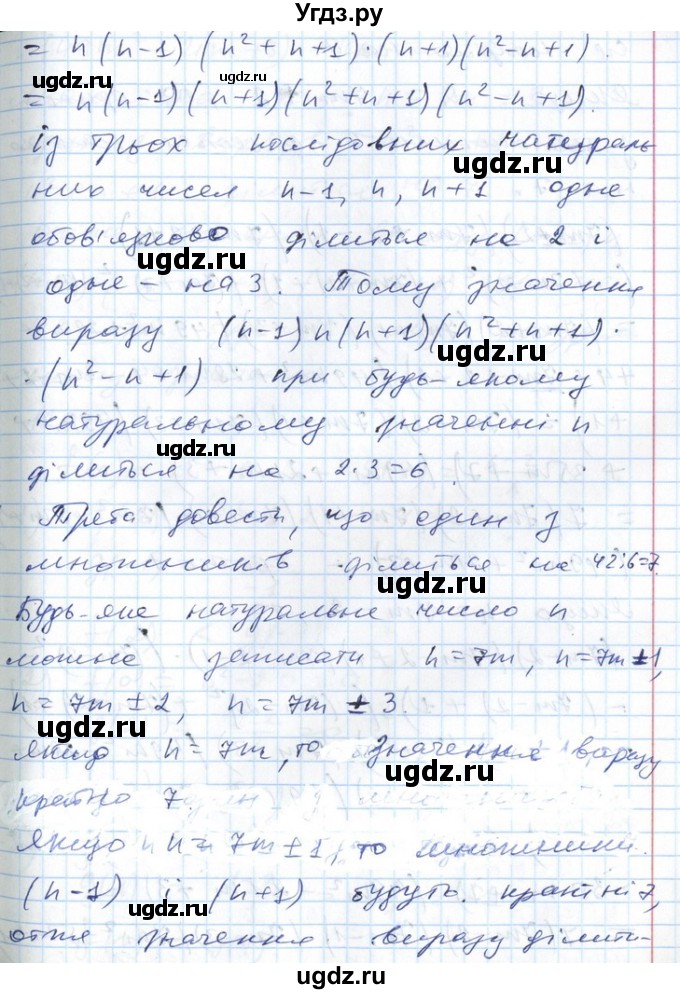 Угдз.ру
= n(n-1)(n²+n+1)·(n+1)(n²-n+1).
= n(n-1)(n+1)(n²+n+1)(n²-n+1).
із трьох послідовних натураль-
них чисел n-1, n, n+1 одне
обов'язково ділиться на 2 і
одне – на 3. Тому значення
виразу (n-1)n(n+1)(n²+n+1)·
·(n²-n+1) при будь-якому
натуральному значенні n
ділиться на 2·3=6
Треба довести, що один з
множників ділиться на 42:6=7
Будь-яке натуральне число n
можна записати n=7m, n=7m±1,
n=7m±2, n=7m±3
Якщо n=7m, то значення виразу
кратно 7
Якщо n=7m±1, то множники
(n-1) і (n+1) будуть кратні 7,
отже значення виразу ділить-
ugdz.ru
ugdz.ru
ugdz.ru
ugdz.ru
ugdz.ru
ugdz.ru
ugdz.ru
ugdz.ru
ugdz.ru
ugdz.ru
ugdz.ru
ugdz.ru
ugdz.ru